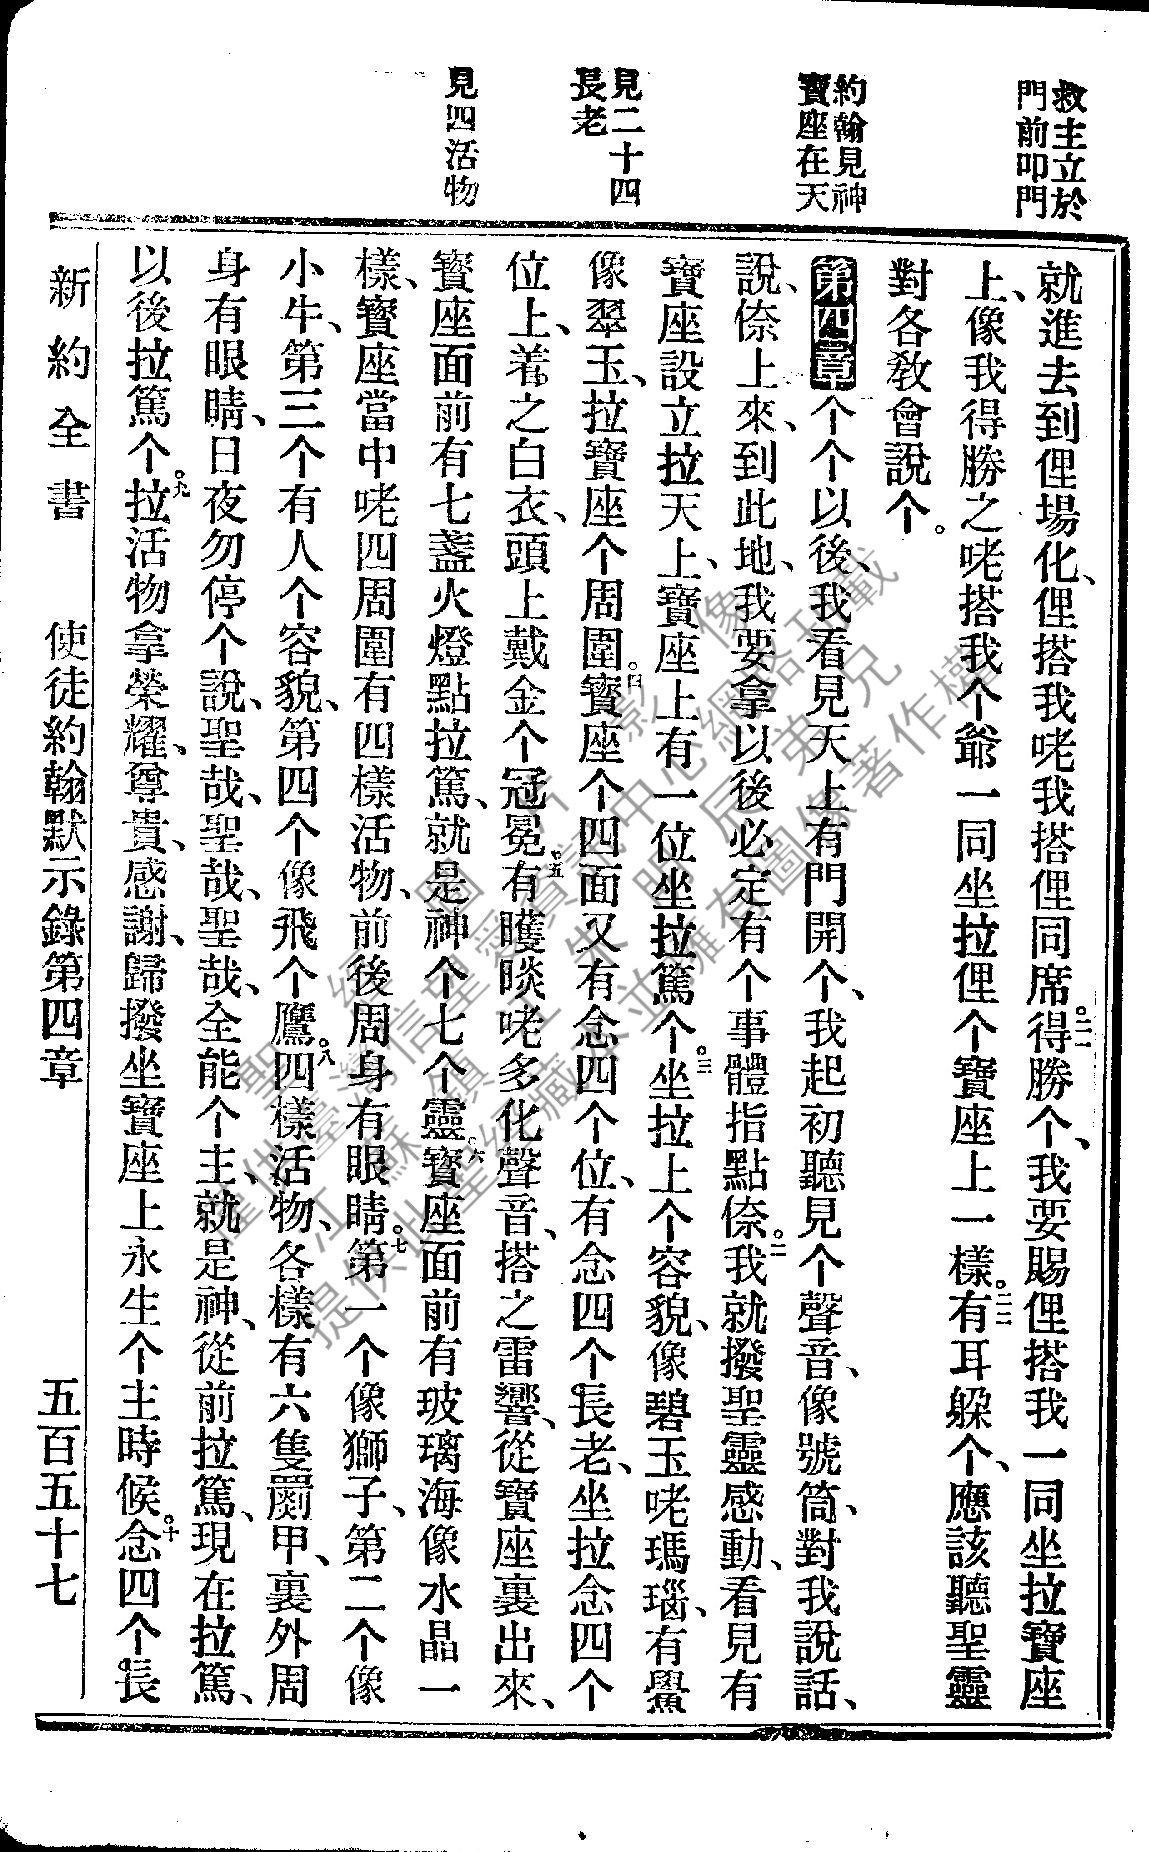 救主立於
門前叩門
約翰見神
寶座在天
見二十四
長老
見四活物
就進去到俚場化、俚搭我咾我搭俚同席。二一得勝个、我要賜俚搭我一同坐拉寶座
上、像我得勝之咾搭我个爺一同坐拉俚个寶座上一樣。二二有耳躲个、應該聽聖靈
對各教會說个。
第四章 个个以後、我看見天上有門開个、我起初聽見个聲音、像號筒、對我說話、
說、㑚上來、到此地、我要拿以後必定有个事體指點㑚。二我就撥聖靈感動、看見有
寶座設立拉天上、寶座上有一位坐拉篤个。三坐拉上个容貌、像碧玉咾瑪瑙、有鱟
像翠玉、拉寶座个周圍。四寶座个四面又有念四个位、有念四个長老、坐拉念四个
位上、着之白衣、頭上戴金个冠冕。五有矆睒咾多化聲音、搭之雷響、從寶座裏出來、
寶座面前有七盞火燈點拉篤、就是神个七个靈。六寶座面前有玻璃海像水晶一
樣、寶座當中咾四周圍有四樣活物、前後周身有眼睛。七第一个像獅子、第二个像
小牛、第三个有人个容貌、第四个像飛个鷹。八四樣活物、各樣有六隻翼甲、裏外周
身有眼睛、日夜勿停个說、聖哉、聖哉、聖哉、全能个主、就是神、從前拉篤、現在拉篤、
以後拉篤个。九拉活物拿榮耀、尊貴、感謝、歸撥坐寶座上永生个主時候。十念四个長
新約全書 使徒約翰默示錄第四章 五百五十七